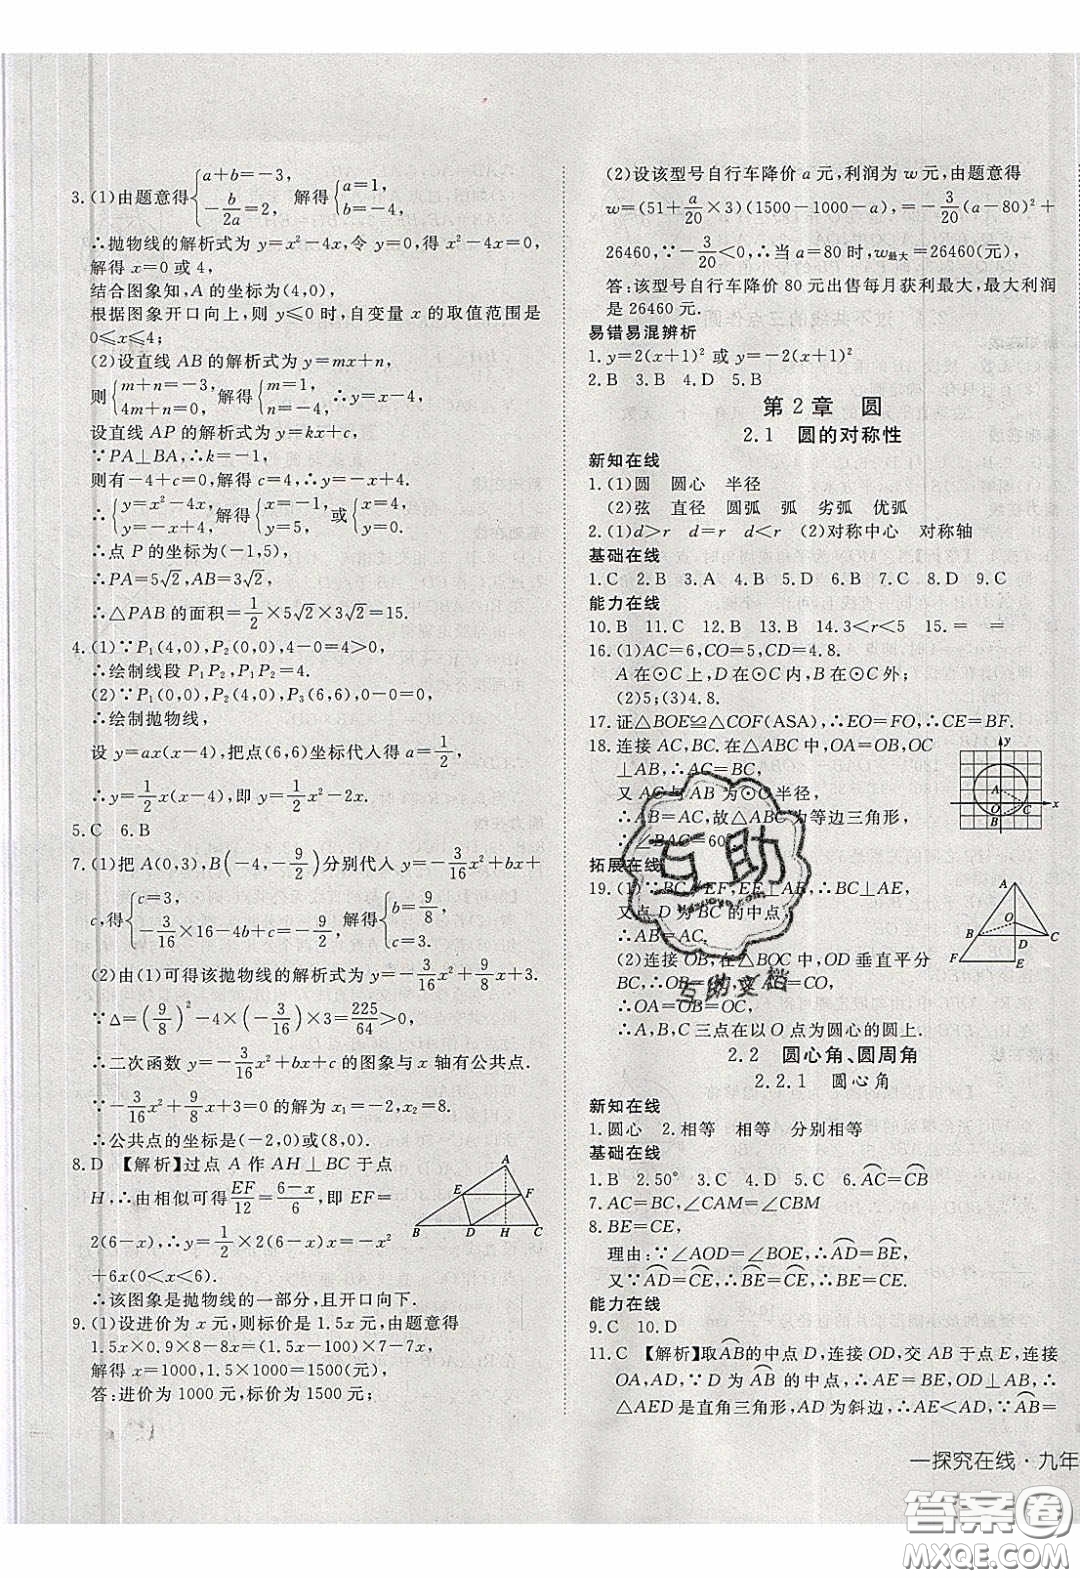 3.(1)由题意得{a+b=-3, -b/2a=2, 解得{a=1, b=-4,
∴抛物线的解析式为 y=x²-4x,令 y=0,得 x²-4x=0,
解得 x=0 或 4,
结合图象知,A 的坐标为(4,0),
根据图象开口向上,则 y≤0 时,自变量 x 的取值范围是
0≤x≤4;
(2)设直线 AB 的解析式为 y=mx+n,
则{m+n=-3, 4m+n=0, 解得{m=1, n=-4, ∴y=x-4,
设直线 AP 的解析式为 y=kx+c,
∵PA⊥BA,∴k=-1,
则有-4+c=0,解得 c=4,∴y=-x+4.
∴{y=x²-4x, y=-x+4, 解得{x=-1, y=5, 或{x=4, y=0.
∴点 P 的坐标为(-1,5),
∴PA=5√2,AB=3√2,
∴△PAB 的面积=1/2×5√2×3√2=15.
4.(1)∵P₁(4,0),P₂(0,0),4-0=4>0,
∴绘制线段 P₁P₂,P₁P₂=4.
(2)∵P₁(0,0),P₂(4,0),P₃(6,6),0-0=0,
∴绘制抛物线,
设 y=ax(x-4),把点(6,6)坐标代入得 a=1/2,
∴y=1/2x(x-4),即 y=1/2x²-2x.
5.C 6.B
7.(1)把 A(0,3),B(-4,-9/2)分别代入 y=-3/16x²+bx+
c,得{c=3, -3/16×16-4b+c=-9/2, 解得{b=9/8, c=3.
(2)由(1)可得该抛物线的解析式为 y=-3/16x²+9/8x+3.
∵Δ=(9/8)²-4×(-3/16)×3=225/64>0,
∴二次函数 y=-3/16x²+bx+c 的图象与 x 轴有公共点.
∵-3/16x²+9/8x+3=0 的解为 x₁=-2,x₂=8.
∴公共点的坐标是(-2,0)或(8,0).
8.D 【解析】过点 A 作 AH⊥BC 于点
H,∴由相似可得EF/12=(6-x)/6,即 EF=
2(6-x),∴y=1/2×2(6-x)x=-x²
+6x(0<x<6).
∴该图象是抛物线的一部分,且开口向下.
A
E
F
B
D
H
C
9.(1)设进价为 x 元,则标价是 1.5x 元,由题意得
1.5x×0.9×8-8x=(1.5x-100)×7-7x,
解得 x=1000,1.5×1000=1500(元),
答:进价为 1000 元,标价为 1500 元;
(2)设该型号自行车降价 a 元,利润为 w 元,由题意得
w=(51+a/20×3)(1500-1000-a),=-3/20(a-80)²+
26460,∵-3/20<0,∴当 a=80 时,w最大=26460(元),
答:该型号自行车降价 80 元出售每月获利最大,最大利润
是 26460 元.
易错易混辨析
1.y=2(x+1)² 或 y=-2(x+1)²
2.B 3.B 4.D 5.B
第 2 章 圆
2.1 圆的对称性
新知在线
1.(1)圆 圆心 半径
(2)弦 直径 圆弧 弧 劣弧 优弧
2.(1)d>r d=r d<r (2)对称中心 对称轴
基础在线
1.C 2.B 3.A 4.B 5.D 6.B 7.C 8.D 9.C
能力在线
10.B 11.C 12.B 13.B 14.3<r<5 15.= =
16.(1)AC=6,CO=5,CD=4.8.
A 在⊙C 上,D 在⊙C 内,B 在⊙C 外;
(2)5;(3)4.8.
17.证△BOE≌△COF(ASA),∴EO=FO,∴CE=BF.
18.连接 AC,BC.在△ABC 中,OA=OB,OC
⊥AB,∴AC=BC,
又 AC与 AB 为⊙C半径,
∴AC=AB,故△ABC 为等边三角形,
∴∠BAC=60°
y
A
O
C
B
x
拓展在线
19.(1)∵BC∥EF,EF⊥AE,∴BC⊥AE,
又点 D 为 BC 的中点,
∴AB=AC.
(2)连接 OB,在△BOC 中,OD 垂直平分
BC,∴OB=OC,
∴OA=OB=OC,
∴A,B,C 三点在以 O 点为圆心的圆上.
A
O
B
D
C
F
E
2.2 圆心角、圆周角
2.2.1 圆心角
新知在线
1.圆心 2.相等 相等 分别相等
基础在线
1.B 2.50° 3.C 4.D 5.C 6.AC=CB
7.AC=BC,∠CAM=∠CBM
8.BE=CE,
理由:∵∠AOD=∠BOE,∴AD=BE,
又∵AD=CE,∴BE=CE,∴BE=CE.
能力在线
9.C 10.D
11.C 【解析】取AB的中点 D,连接 OD,交 AB 于点 E,连接
OA,AD,∵D 为AB 的中点,∴OD⊥AB,∴
△AED 是直角三角形,AD 为斜边,∴AE<AD,∵AB=
一探究在线·九年
互助
互助文档
答案卷
MXQE.COM